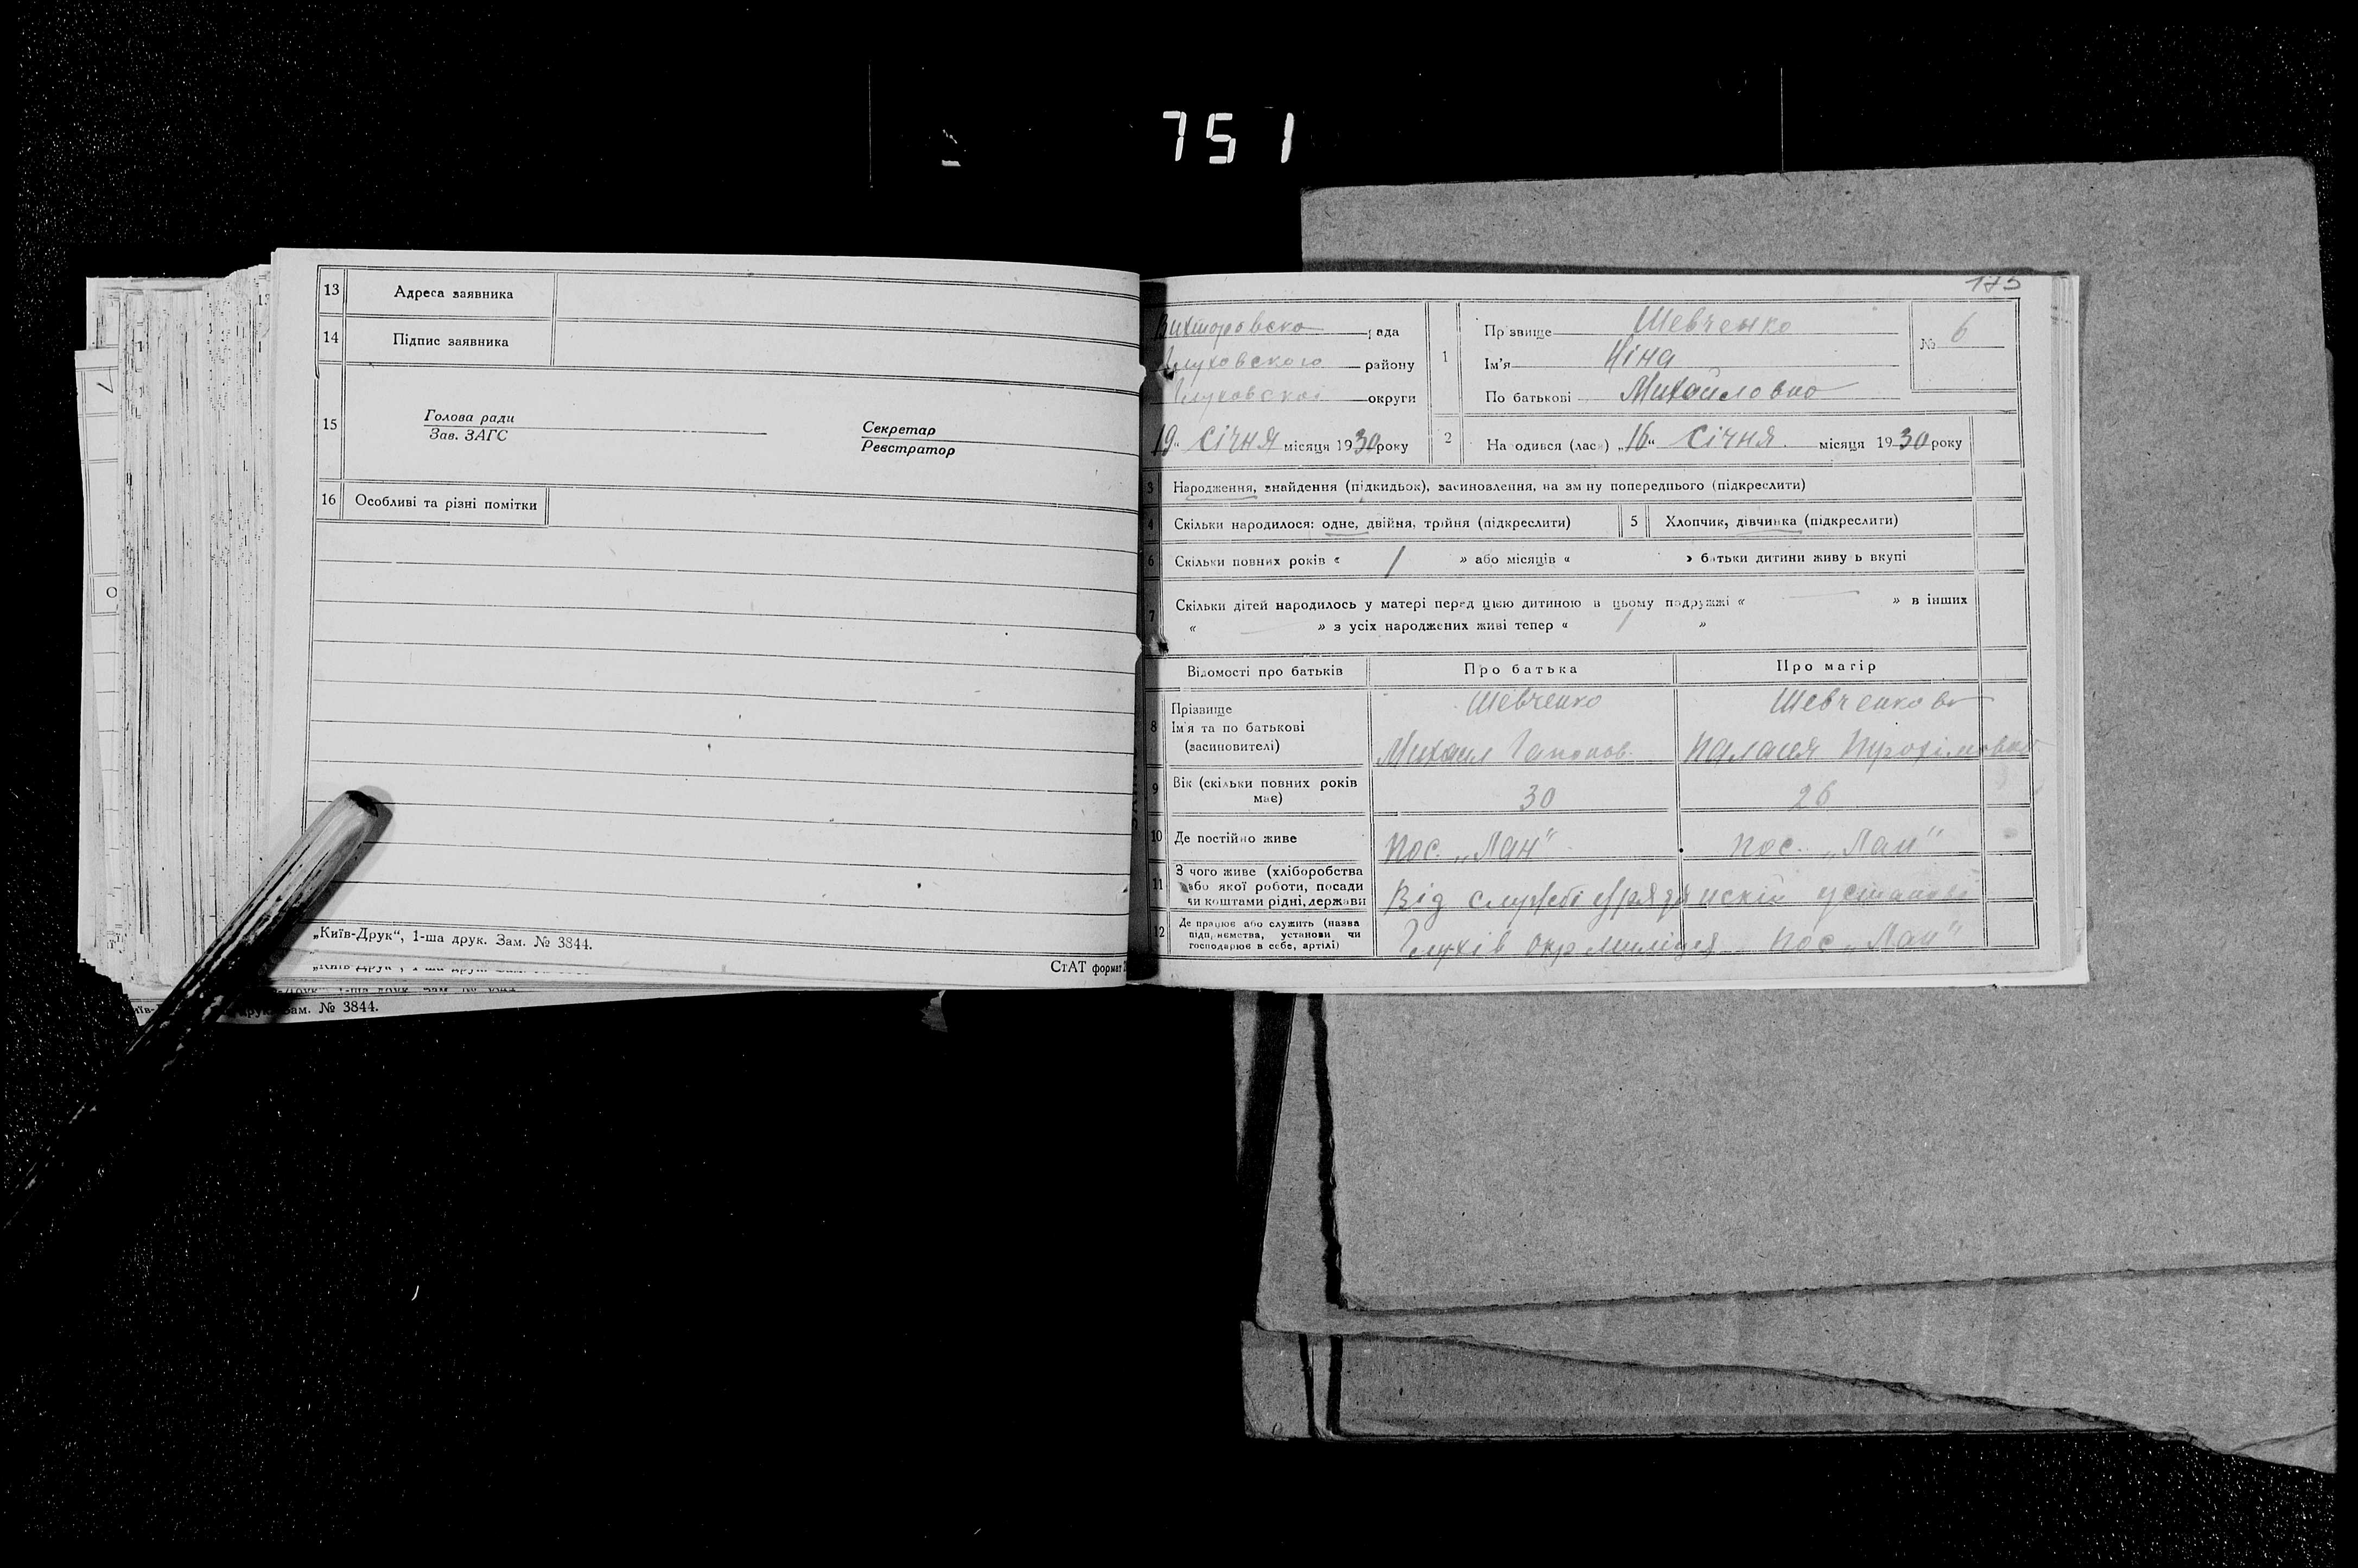 751
13 Адреса заявника
14 Підпис заявника
15 Голова ради
Зав. ЗАГС
Секретар
Реєстратор
16 Особливі та різні помітки
„Київ-Друк“, 1-ша друк. Зам. № 3844.
СтАТ формат
Зам. № 3844.
175
Вихторовско рада
Глуховского району
Глуховскої округи
19“ Січня місяця 1930 року
1 Прізвище Шевченко
Ім'я Ніна
По батькові Михайловно
№ 6
2 На одився (лась) „16“ Січня місяця 1930 року
3 Народження, знайдення (підкидьок), засиновлення, на зм ну попереднього (підкреслити)
4 Скільки народилося: одне, двійня, тройня (підкреслити) 5 Хлопчик, дівчинка (підкреслити)
6 Скільки повних років « 1 » або місяців « » батьки дитини живу ь вкупі
7 Скільки дітей народилось у матері перед цією дитиною в цьому подружжі « — » в інших
« — » з усіх народжених живі тепер « 1 »
Відомості про батьків Про батька Про матір
8 Прізвище
Ім'я та по батькові
(засиновителі)
Шевченко
Михаил Гапонов.
Шевченкова
Паласія Трохімовно
9 Вік (скільки повних років має) 30 26
10 Де постійно живе пос. „Лан“ пос. „Лан“
11 З чого живе (хліборобства
або якої роботи, посади
чи коштами рідні, держави
Від службі установі
12 Де працює або служить (назва
підп, ємства, установи чи
господарює в себе, артілі)
Глухів Окр Миліция пос „Лан“